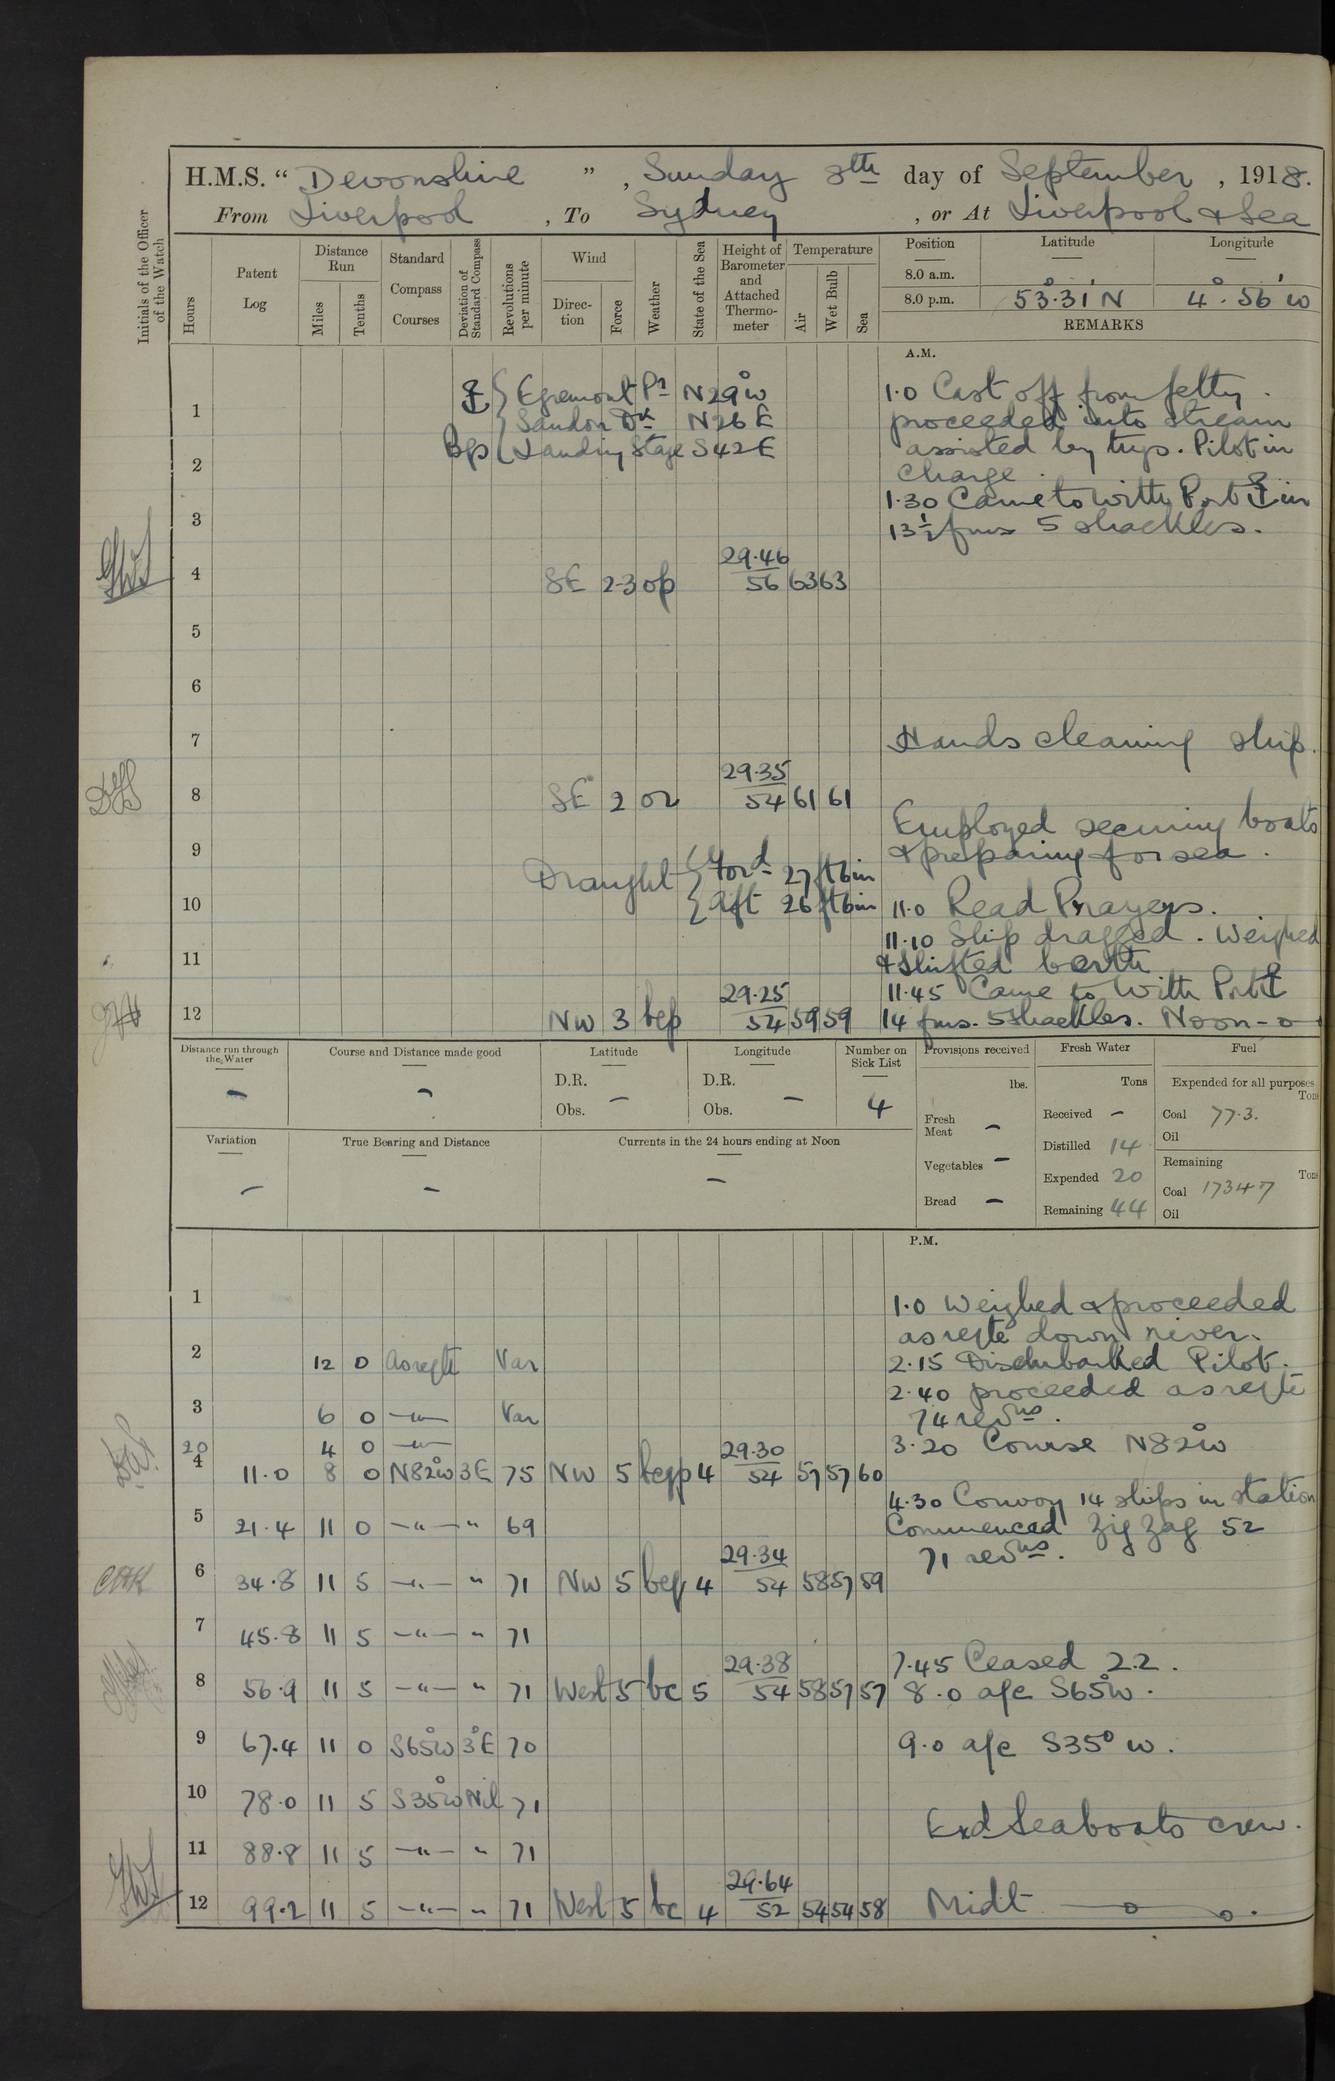 H.M.S. “ Devonshire ” , Sunday 8th day of September , 1918.
From Liverpool , To Sydney , or At Liverpool & Sea
Initials of the Officer of the Watch
Hours
Patent Log
Distance Run
Miles
Tenths
Standard Compass Courses
Deviation of Standard Compass
Revolutions per minute
Wind
Direc-tion
Force
Weather
State of the Sea
Height of Barometer and Attached Thermo-meter
Temperature
Air
Wet Bulb
Sea
Position Latitude Longitude
8.0 a.m. ° '
8.0 p.m. 53·31'N 4°·56'W
REMARKS
A.M.
⚓ Bgs { Egremont Pr N29°W
Sandon Dk N26E
Landing Stage S42E
1
2
3
4 SE 2-3 op 29·46/56 63 63
5
6
7
8 SE 2 oz 29·35/54 61 61
9
Draught { Ford 27ft 6in
10 { Aft 26ft 6in
11
12 NW 3 bcp 29·25/54 59 59
1·0 Cast off from jetty.
proceeded into stream
assisted by tugs. Pilot in
charge.
1·30 Came to with Port ⚓ in
13½ fms 5 shackles.
Hands cleaning ship.
Employed securing boats
& preparing for sea.
11·0 Read Prayers.
11·10 Ship dragged. Weighed
& shifted berth
11·45 Came to with Port ⚓
14 fms. 5 shackles. Noon -o-
Distance run through the Water –
Course and Distance made good –
Latitude D.R. Obs. –
Longitude D.R. Obs. –
Number on Sick List 4
Variation –
True Bearing and Distance –
Currents in the 24 hours ending at Noon –
Provisions received
lbs.
Fresh Meat –
Vegetables –
Bread –
Fresh Water
Tons
Received –
Distilled 14
Expended 20
Remaining 44
Fuel
Expended for all purposes
Tons
Coal 77·3.
Oil
Remaining
Tons
Coal 17347
Oil
P.M.
1
2 12 0 as reqte Var
3 6 0 –"– Var
20 4 0 –"–
4 11·0 8 0 N82°W 3E 75 NW 5 bcqp 4 29·30/54 57 57 60
5 21·4 11 0 –"– " 69
6 34·8 11 5 –"– " 71 NW 5 bcp 4 29·34/54 58 57 59
7 45·8 11 5 –"– " 71
8 56·9 11 5 –"– " 71 West 5 bc 5 29·38/54 58 57 57
9 67·4 11 0 S65°W 3°E 70
10 78·0 11 5 S35°W Nil 71
11 88·8 11 5 –"– " 71
12 99·2 11 5 –"– " 71 West 5 bc 4 29·64/52 54 54 58
1·0 Weighed & proceeded
as reqte down river.
2·15 Disembarked Pilot.
2·40 proceeded as reqte
74 revns.
3·20 Course N82°W
4·30 Convoy 14 ships in station
Commenced Zig Zag 52
71 revns.
7·45 Ceased Z.Z.
8·0 a/c S65°W.
9·0 a/c S35°W.
Exd Seaboats crew.
Midt —o—o.